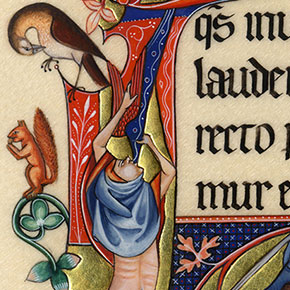 qs̄ inu
lauden
recto p
mur e